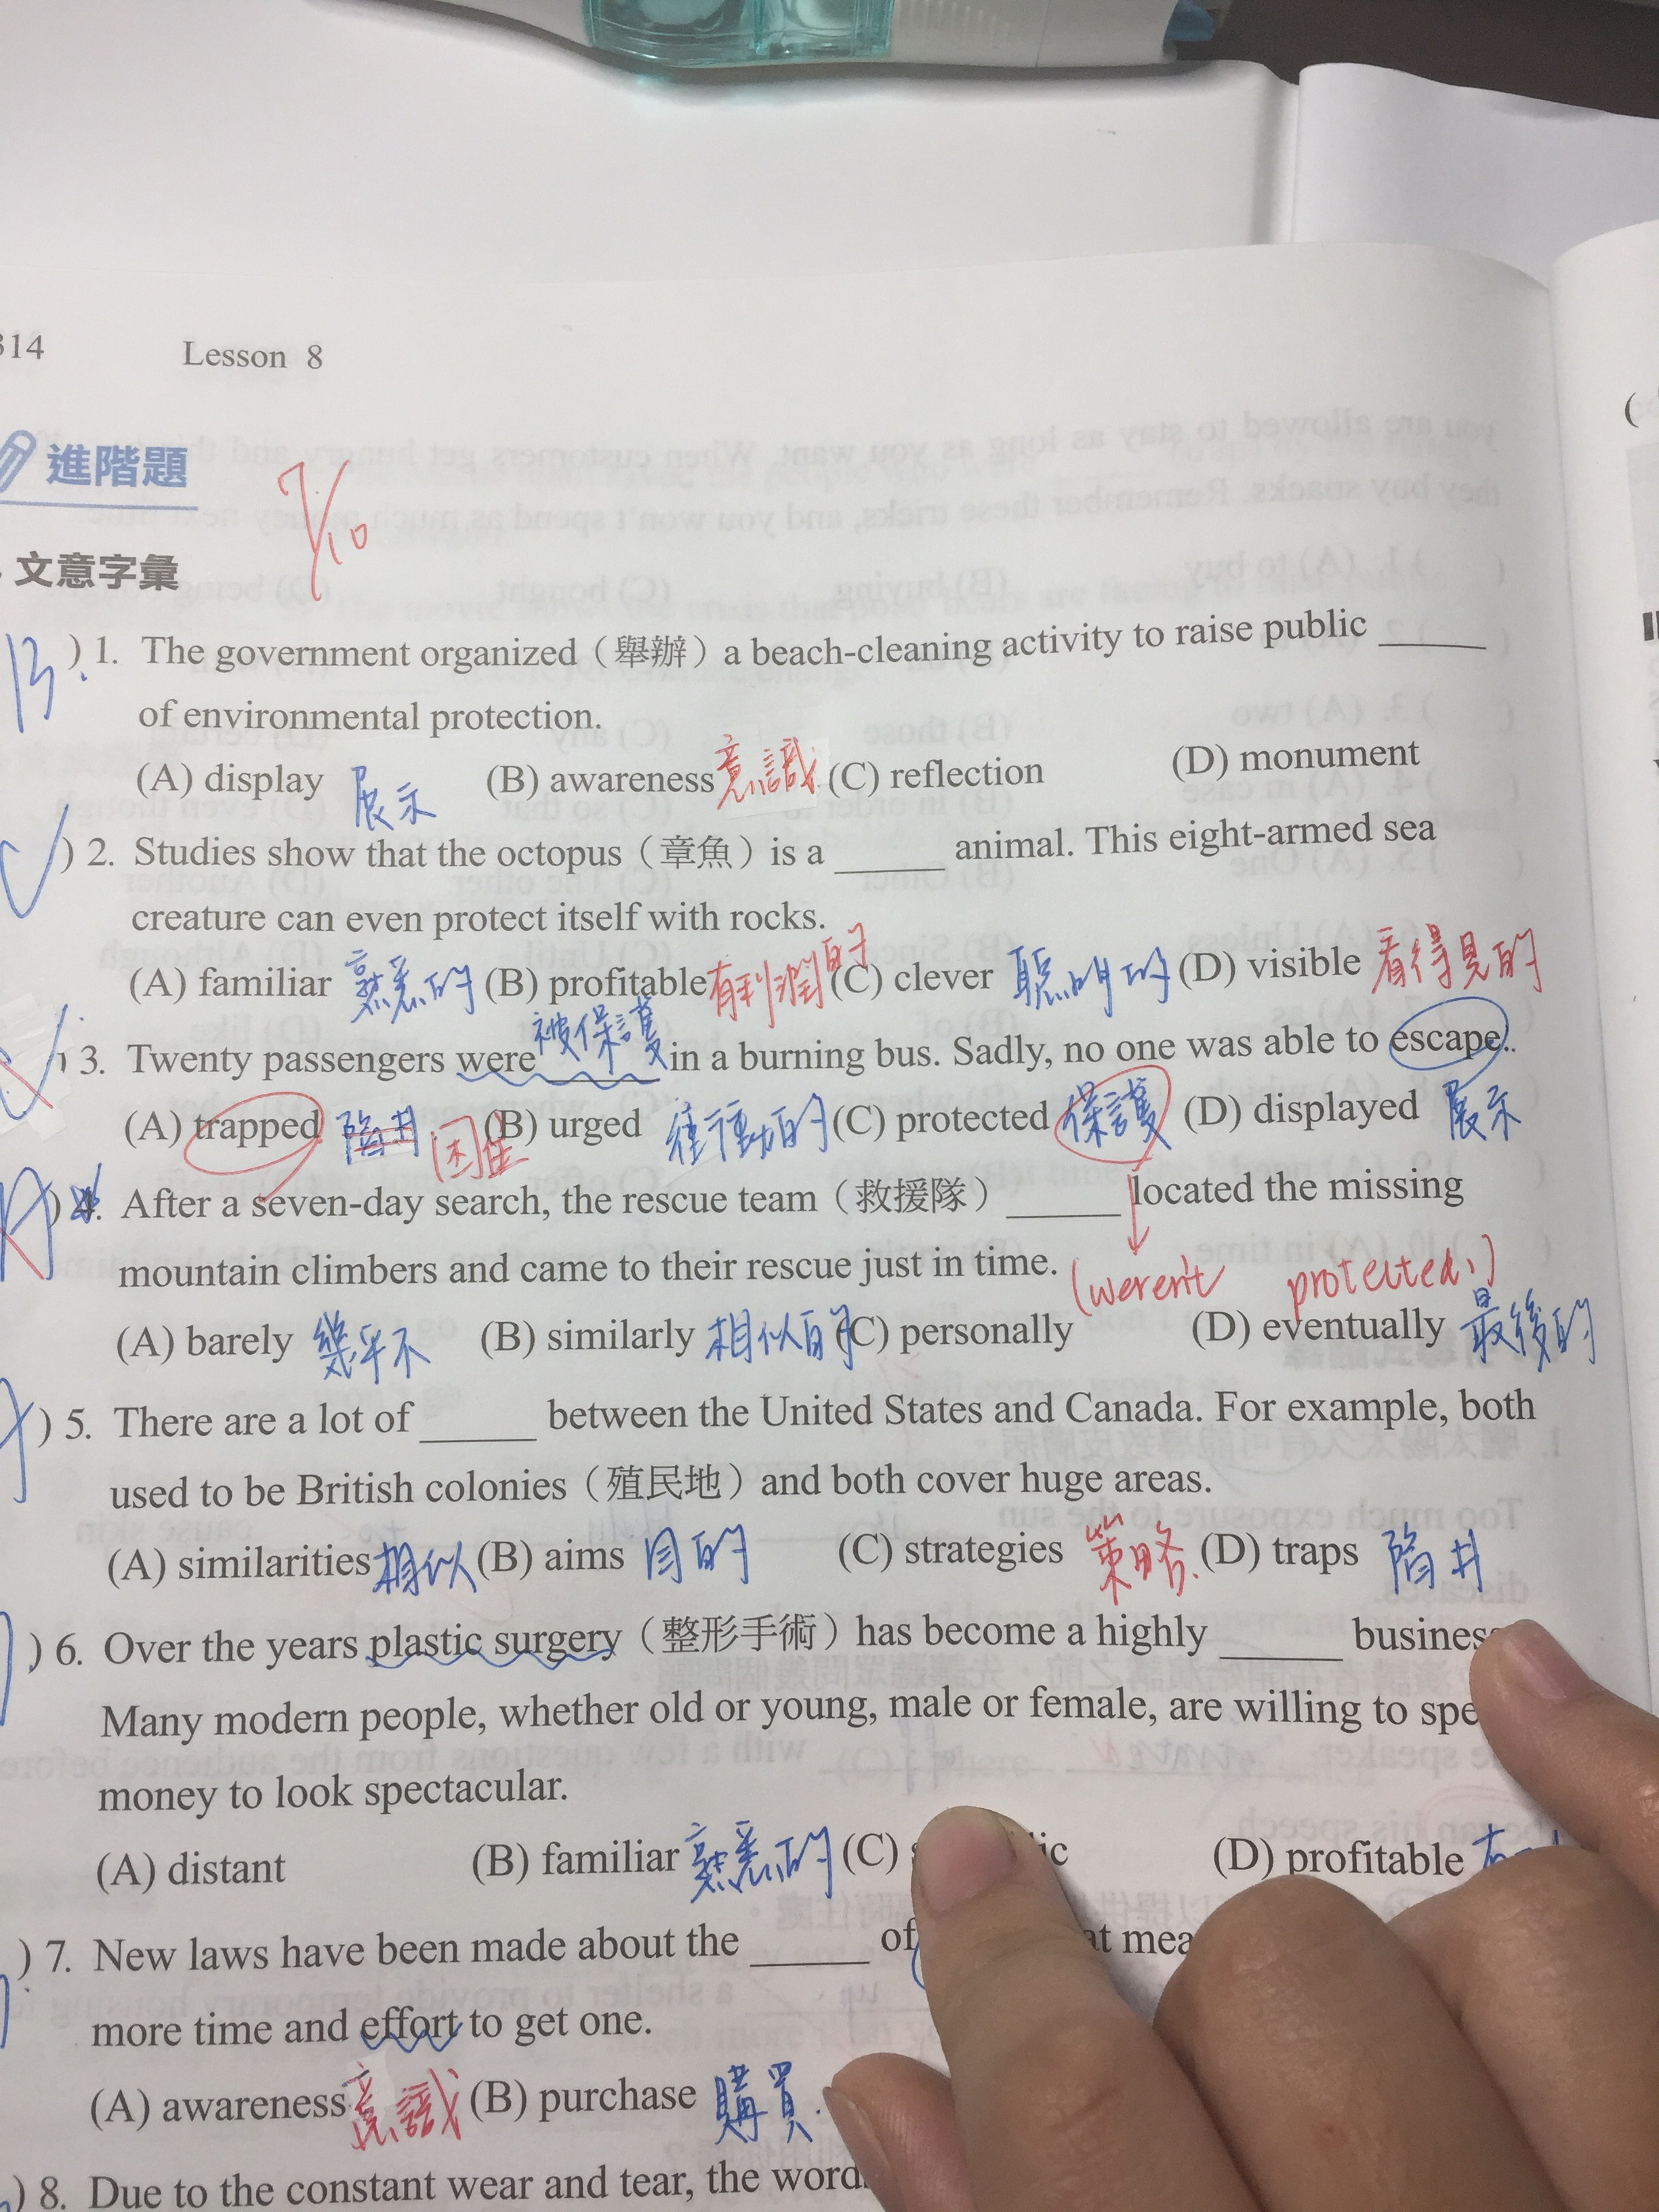 314 Lesson 8
進階題
7/10
文意字彙
B ) 1. The government organized（舉辦）a beach-cleaning activity to raise public ______
of environmental protection.
(A) display 展示 (B) awareness 意識 (C) reflection (D) monument
C ) 2. Studies show that the octopus（章魚）is a ______ animal. This eight-armed sea
creature can even protect itself with rocks.
(A) familiar 熟悉的 (B) profitable 有利潤的 (C) clever 聰明的 (D) visible 看得見的
) 3. Twenty passengers were 被保護 in a burning bus. Sadly, no one was able to escape.
(A) trapped 陷井 困住 (B) urged 衝動的 (C) protected 保護 (D) displayed 展示
) 4. After a seven-day search, the rescue team（救援隊）______ located the missing
mountain climbers and came to their rescue just in time.
(weren't protected.)
(A) barely 幾乎不 (B) similarly 相似的 (C) personally (D) eventually 最後的
) 5. There are a lot of ______ between the United States and Canada. For example, both
used to be British colonies（殖民地）and both cover huge areas.
(A) similarities 相似 (B) aims 目的 (C) strategies 策略 (D) traps 陷井
) 6. Over the years plastic surgery（整形手術）has become a highly ______ business
Many modern people, whether old or young, male or female, are willing to spe
money to look spectacular.
(A) distant (B) familiar 熟悉的 (C) (D) profitable 有
) 7. New laws have been made about the ______ of
more time and effort to get one.
(A) awareness 意識 (B) purchase 購買
) 8. Due to the constant wear and tear, the word